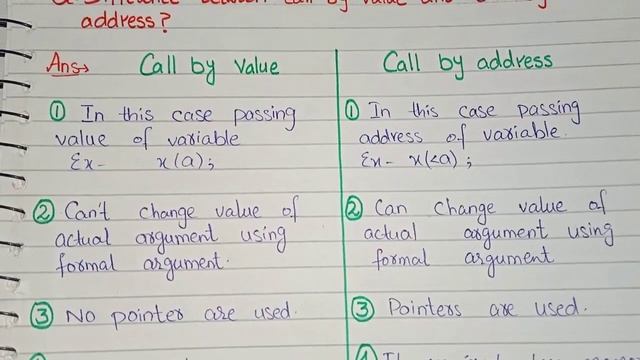 address?
Ans→ Call by Value
① In this case passing
value of variable
Ex- x(a);
② Can't change value of
actual argument using
formal argument.
③ No pointer are used.
Call by address
① In this case passing
address of variable.
Ex- x(<a);
② Can change value of
actual argument using
formal argument
③ Pointers are used.